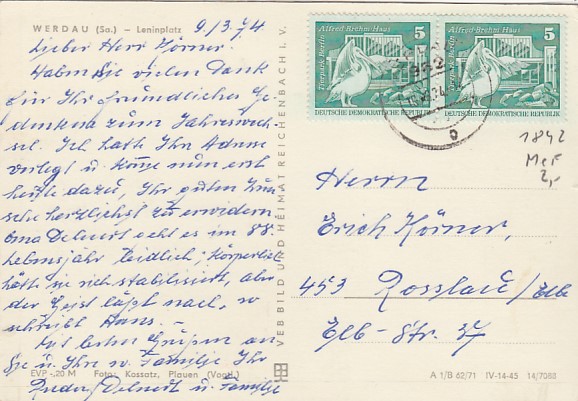 WERDAU (Sa.) – Leninplatz
9/3.74
Lieber Herr Körner.
Haben Sie vielen Dank
für Ihr freundliches Ge-
denken zum Jahreswech-
sel. Ich hatte Ihr
verlegt u. komme nun erst
heute dazu, Ihr guten Wün-
sche herzlichst zu erwidern
Oma Dehnert geht es im 88.
Lebensjahr leidlich, körperlich
hätte sie sich stabilisiert, aber
der Geist läßt nach, so
schreibt Hans. –
Mit besten Grüßen an
Sie u. Ihre w. Familie Ihr
Dehnert u. Familie
EVP -,20 M Foto: Kossatz, Plauen (Vogtl.)
VEB BILD UND HEIMAT REICHENBACH I. V.
Alfred-Brehm-Haus 5
Tierpark Berlin
DEUTSCHE DEMOKRATISCHE REPUBLIK
Alfred-Brehm-Haus 5
Tierpark Berlin
DEUTSCHE DEMOKRATISCHE REPUBLIK
1842
MeF
2,-
Herrn
Erich Körner,
453 Rosslau/Elbe
Elb-Str. 37
A 1/B 62/71 IV-14-45 14/7088